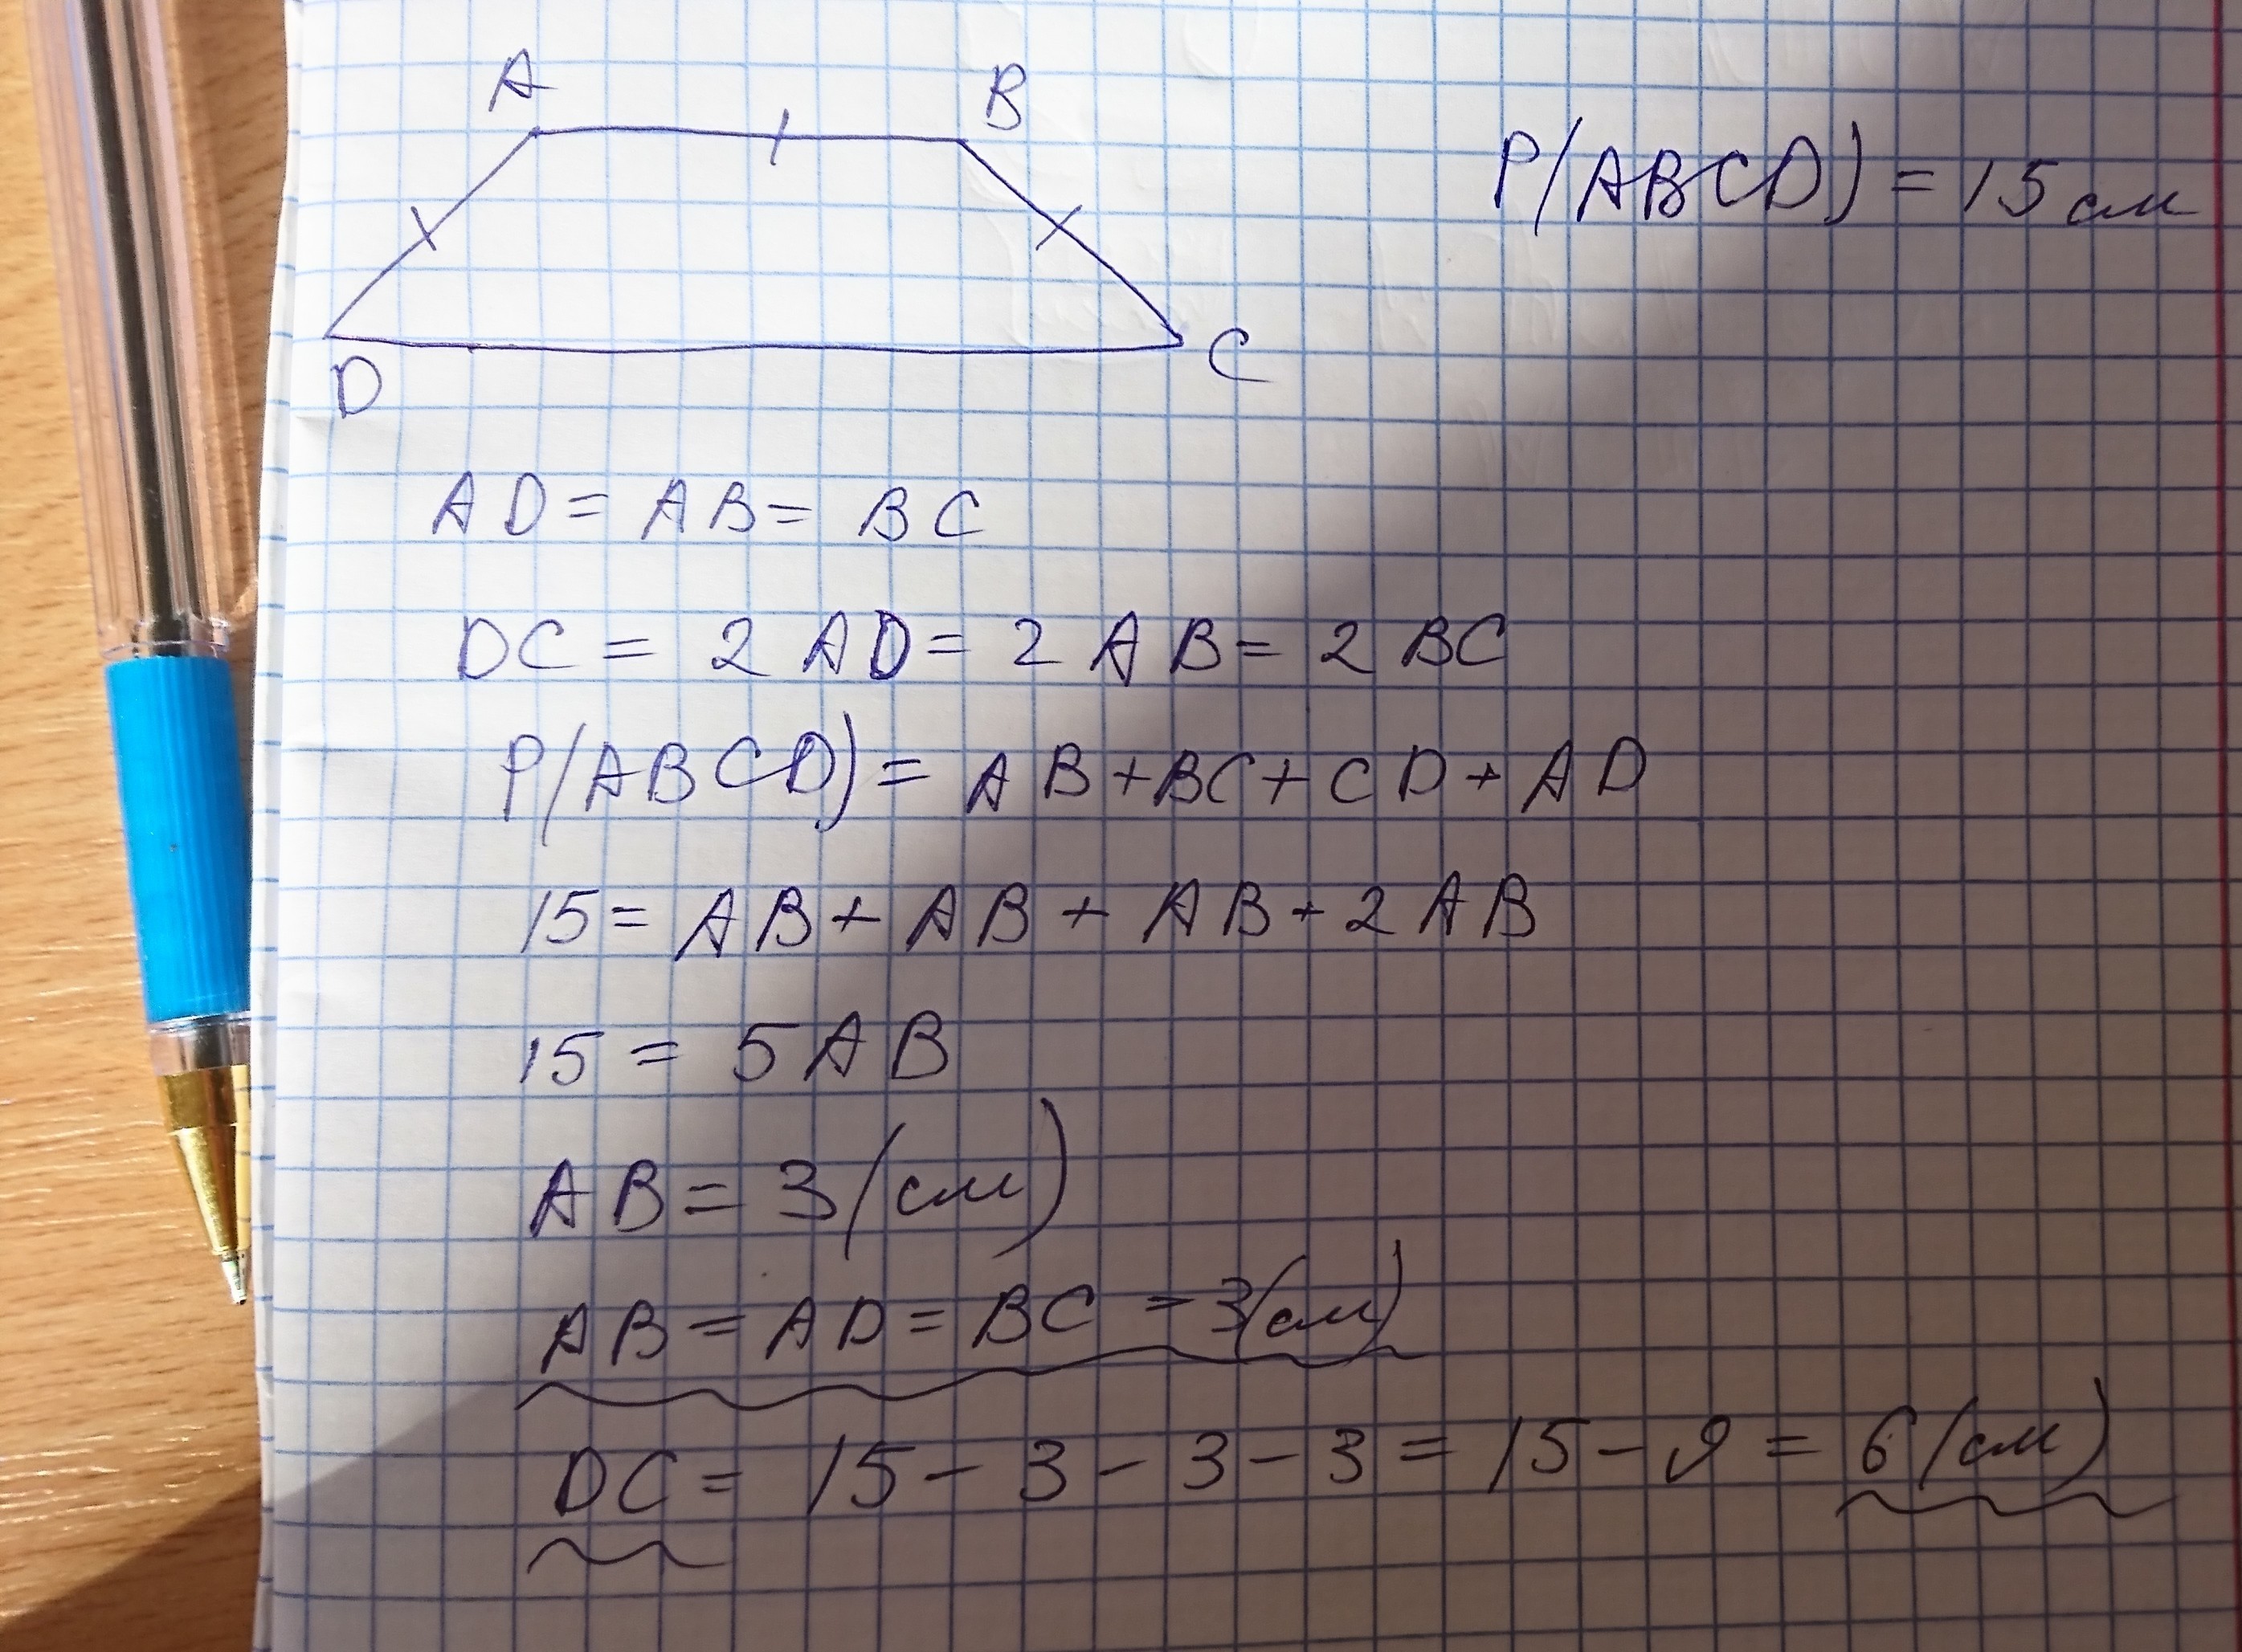 A B
P(ABCD) = 15 см
D C
AD = AB = BC
DC = 2 AD = 2 AB = 2 BC
P(ABCD) = AB + BC + CD + AD
15 = AB + AB + AB + 2 AB
15 = 5 AB
AB = 3 (см)
AB = AD = BC = 3 (см)
DC = 15 - 3 - 3 - 3 = 15 - 9 = 6 (см)